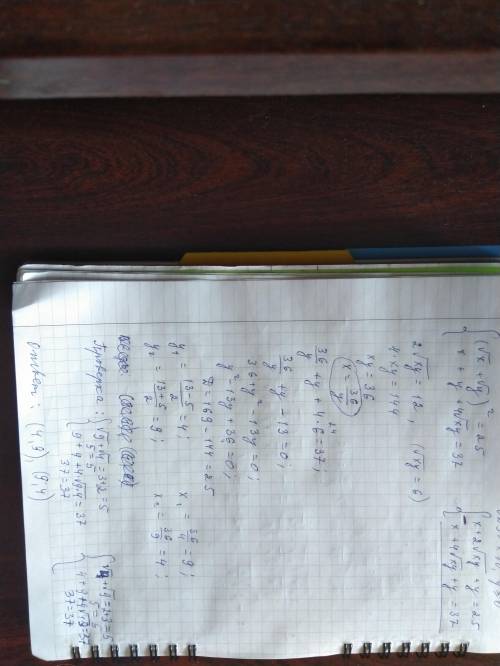 { (√x + √y)² = 25
x + y + 4√xy = 37
{ x + 2√xy + y = 25
x + 4√xy + y = 37
2√xy = 12, (√xy = 6)
4·xy = 144
xy = 36
x = 36/y
36/y + y + 4·6 = 37;
24
36/y + y - 13 = 0;
36 + y² - 13y = 0;
y² - 13y + 36 = 0;
D = 169 - 144 = 25
y₁ = (13-5)/2 = 4; x₁ = 36/4 = 9;
y₂ = (13+5)/2 = 9; x₂ = 36/9 = 4;
Проверка: { √9 + √4 = 3+2 = 5
5 = 5
9 + 4 + 4√9·4 = 37
37 = 37
{ √4 + √9 = 2+3 = 5
5 = 5
4 + 9 + 4√4·9 = 37
37 = 37
Ответ: (4,9); (9;4)